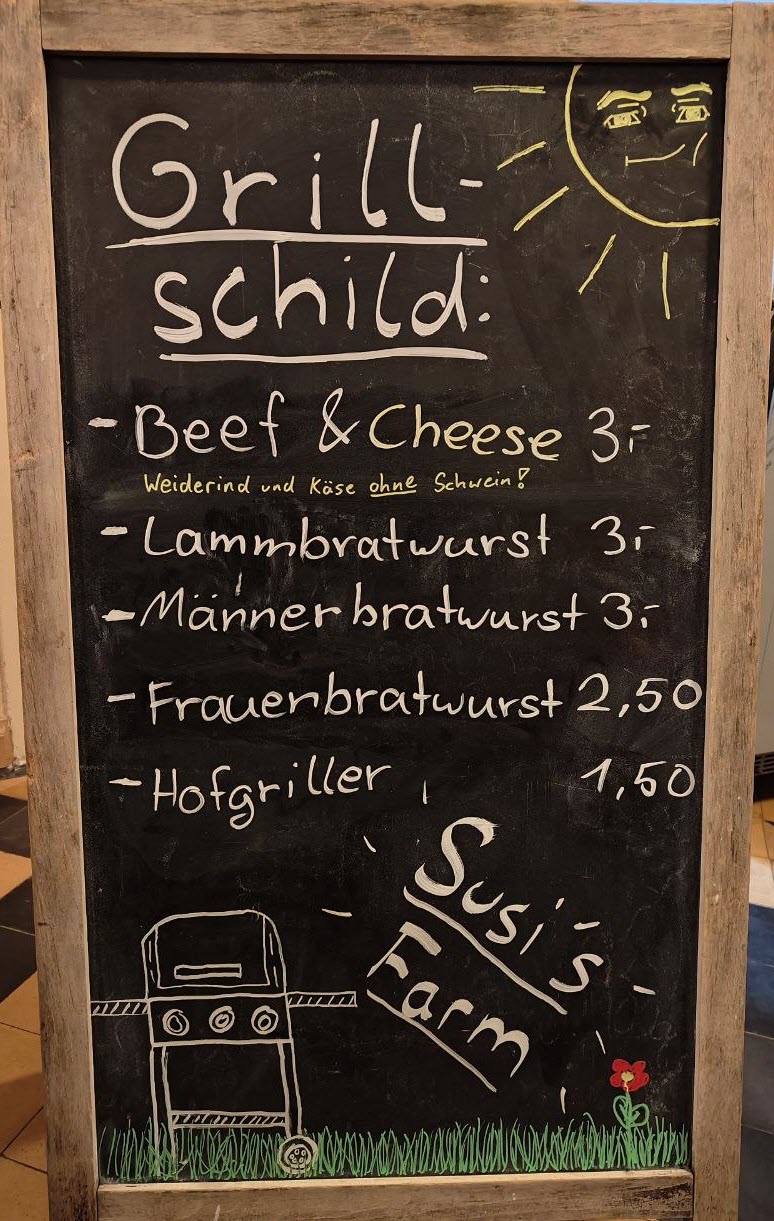 Grill-
schild:
- Beef & Cheese 3,-
Weiderind und Käse ohne Schwein!
- Lammbratwurst 3,-
- Männerbratwurst 3,-
- Frauenbratwurst 2,50
- Hofgriller 1,50
Susi's
Farm